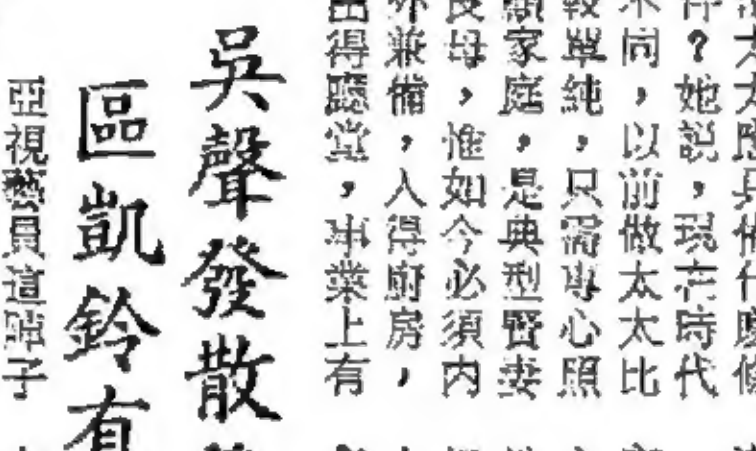 太太應具備什麼條
件？她説，現在時代
不同，以前做太太比
較單純，只需專心照
顧家庭，是典型賢妻
良母，惟如今必須内
外兼備，入得廚房，
出得廳堂，事業上有
吳聲發散
區凱鈴有
亞視藝員這陣子